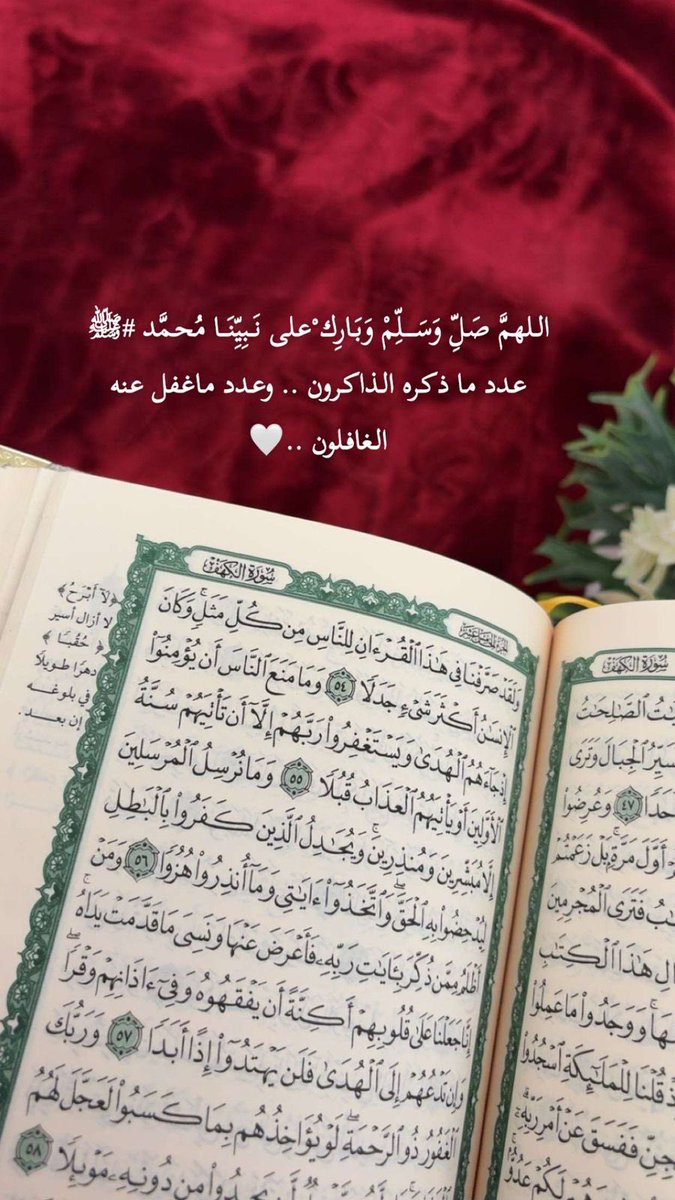 اللهمَّ صَلِّ وَسَــلِّمْ وَبَارِك ْعلى نَـبِيِّنَـا مُحمَّد #ﷺ
عدد ما ذكره الذاكرون .. وعدد ماغفل عنه
الغافلون ..🤍
سُورَةُ الكَهْفِ
ٱلصَّٰلِحَٰتُ
ٱلْجِبَالَ وَتَرَى
٤٧ وَعُرِضُوا۟
أَوَّلَ مَرَّةٍۭ ۚ بَلْ زَعَمْتُمْ
فَتَرَى ٱلْمُجْرِمِينَ
هَٰذَا ٱلْكِتَٰبِ
وَوَجَدُوا۟ مَا عَمِلُوا۟
قُلْنَا لِلْمَلَٰٓئِكَةِ ٱسْجُدُوا۟
فَفَسَقَ عَنْ أَمْرِ رَبِّهِۦٓ ۗ
لَكُمْ عَدُوٌّۢ
سُورَةُ الكَهْفِ
وَلَقَدْ صَرَّفْنَا فِى هَٰذَا ٱلْقُرْءَانِ لِلنَّاسِ مِن كُلِّ مَثَلٍ ۚ وَكَانَ
ٱلْإِنسَٰنُ أَكْثَرَ شَىْءٍ جَدَلًا ٥٤ وَمَا مَنَعَ ٱلنَّاسَ أَن يُؤْمِنُوٓا۟
إِذْ جَآءَهُمُ ٱلْهُدَىٰ وَيَسْتَغْفِرُوا۟ رَبَّهُمْ إِلَّآ أَن تَأْتِيَهُمْ سُنَّةُ
ٱلْأَوَّلِينَ أَوْ يَأْتِيَهُمُ ٱلْعَذَابُ قُبُلًا ٥٥ وَمَا نُرْسِلُ ٱلْمُرْسَلِينَ
إِلَّا مُبَشِّرِينَ وَمُنذِرِينَ ۚ وَيُجَٰدِلُ ٱلَّذِينَ كَفَرُوا۟ بِٱلْبَٰطِلِ
لِيُدْحِضُوا۟ بِهِ ٱلْحَقَّ ۖ وَٱتَّخَذُوٓا۟ ءَايَٰتِى وَمَآ أُنذِرُوا۟ هُزُوًا ٥٦ وَمَنْ
أَظْلَمُ مِمَّن ذُكِّرَ بِـَٔايَٰتِ رَبِّهِۦ فَأَعْرَضَ عَنْهَا وَنَسِىَ مَا قَدَّمَتْ يَدَاهُ ۚ
إِنَّا جَعَلْنَا عَلَىٰ قُلُوبِهِمْ أَكِنَّةً أَن يَفْقَهُوهُ وَفِىٓ ءَاذَانِهِمْ وَقْرًا ۖ
وَإِن تَدْعُهُمْ إِلَى ٱلْهُدَىٰ فَلَن يَهْتَدُوٓا۟ إِذًا أَبَدًا ٥٧ وَرَبُّكَ
ٱلْغَفُورُ ذُو ٱلرَّحْمَةِ ۖ لَوْ يُؤَاخِذُهُم بِمَا كَسَبُوا۟ لَعَجَّلَ لَهُمُ
لَّن يَجِدُوا۟ مِن دُونِهِۦ مَوْئِلًا ٥٨
﴿لَآ أَبْرَحُ﴾
لا أزال أسير
﴿حُقُبًا﴾
دهرًا طويلًا
في بلوغه
إن بعد.